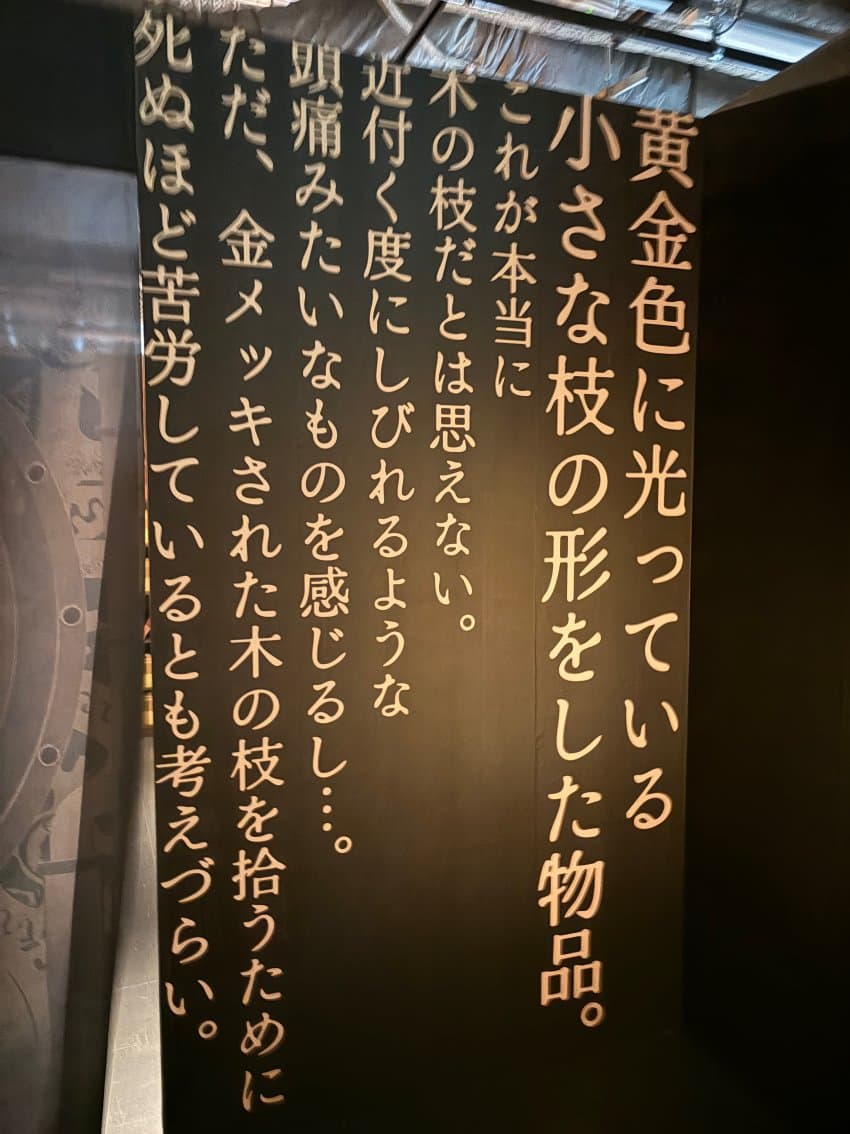 黄金色に光っている
小さな枝の形をした物品。
これが本当に
木の枝だとは思えない。
近付く度にしびれるような
頭痛みたいなものを感じるし…。
ただ、金メッキされた木の枝を拾うために
死ぬほど苦労しているとも考えづらい。